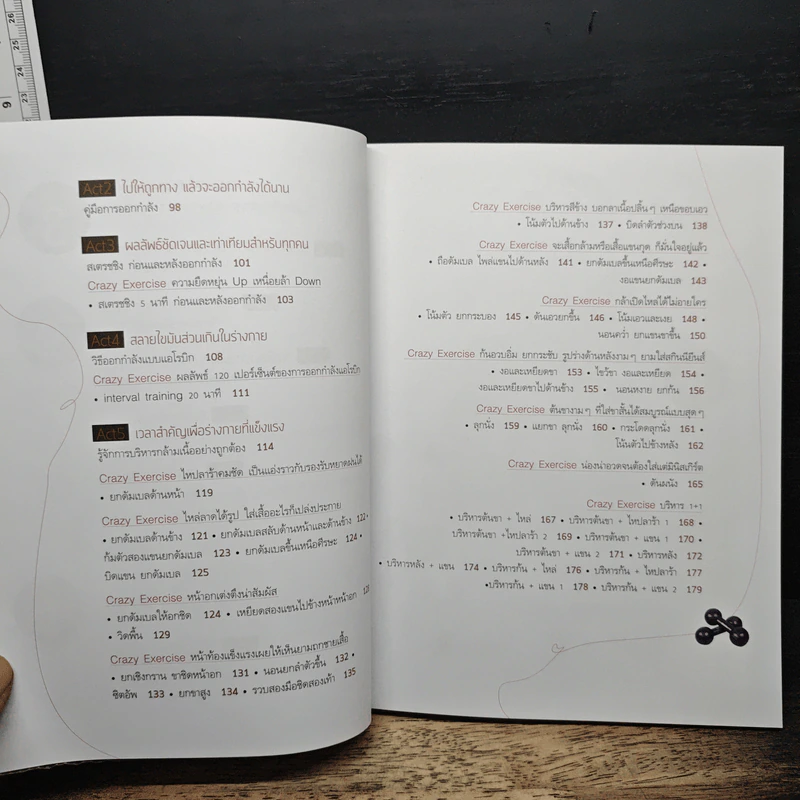 26
25
24
23
9
Act2 ไปให้ถูกทาง แล้วจะออกกำลังได้นาน
คู่มือการออกกำลัง 98
Act3 ผลลัพธ์ชัดเจนและเท่าเทียมสำหรับทุกคน
สเตรชชิง ก่อนและหลังออกกำลัง 101
Crazy Exercise ความยืดหยุ่น Up เหนื่อยล้า Down
• สเตรชชิง 5 นาที ก่อนและหลังออกกำลัง 103
Act4 สลายไขมันส่วนเกินในร่างกาย
วิธีออกกำลังแบบแอโรบิก 108
Crazy Exercise ผลลัพธ์ 120 เปอร์เซ็นต์ของการออกกำลังแอโรบิก
• interval training 20 นาที 111
Act5 เวลาสำคัญเพื่อร่างกายที่แข็งแรง
รู้จักการบริหารกล้ามเนื้ออย่างถูกต้อง 114
Crazy Exercise ไหปลาร้าคมชัด เป็นแอ่งราวกับรองรับหยาดฝนได้
• ยกดัมเบลด้านหน้า 119
Crazy Exercise ไหล่ลาดได้รูป ใส่เสื้ออะไรก็เปล่งประกาย
• ยกดัมเบลด้านข้าง 121 • ยกดัมเบลสลับด้านหน้าและด้านข้าง 122 •
ก้มตัวสองแขนยกดัมเบล 123 • ยกดัมเบลขึ้นเหนือศีรษะ 124 •
บิดแขน ยกดัมเบล 125
Crazy Exercise หน้าอกเต่งตึงน่าสัมผัส
• ยกดัมเบลให้อกชิด 124 • เหยียดสองแขนไปข้างหน้าหน้าอก 128
• วิดพื้น 129
Crazy Exercise หน้าท้องแข็งแรงเผยให้เห็นยามถกชายเสื้อ
• ยกเชิงกราน ขาชิดหน้าอก 131 • นอนยกลำตัวขึ้น 132 •
ซิตอัพ 133 • ยกขาสูง 134 • รวบสองมือชิดสองเท้า 135
Crazy Exercise บริหารสีข้าง บอกลาเนื้อปลิ้นๆ เหนือขอบเอว
• โน้มตัวไปด้านข้าง 137 • บิดลำตัวช่วงบน 138
Crazy Exercise จะเสื้อกล้ามหรือเสื้อแขนกุด ก็มั่นใจอยู่แล้ว
• ถือดัมเบล ไพล่แขนไปด้านหลัง 141 • ยกดัมเบลขึ้นเหนือศีรษะ 142 •
งอแขนยกดัมเบล 143
Crazy Exercise กล้าเปิดไหล่ได้ไม่อายใคร
• โน้มตัว ยกกระบอง 145 • ดันเอวยกขึ้น 146 • โน้มเอวและเงย 148 •
นอนคว่ำ ยกแขนขาขึ้น 150
Crazy Exercise ก้นอวบอิ่ม ยกกระชับ รูปร่างด้านหลังงามๆ ยามใส่สกินนียีนส์
• งอและเหยียดขา 153 • ไขว้ขา งอและเหยียด 154 •
งอและเหยียดขาไปด้านข้าง 155 • นอนหงาย ยกก้น 156
Crazy Exercise ต้นขางามๆ ที่ใส่ขาสั้นได้สมบูรณ์แบบสุดๆ
• ลุกนั่ง 159 • แยกขา ลุกนั่ง 160 • กระโดดลุกนั่ง 161 •
โน้มตัวไปข้างหลัง 162
Crazy Exercise น่องน่าอวดจนต้องใส่แต่มินิสเกิร์ต
• ดันผนัง 165
Crazy Exercise บริหาร 1+1
• บริหารต้นขา + ไหล่ 167 • บริหารต้นขา + ไหปลาร้า 1 168 •
บริหารต้นขา +ไหปลาร้า 2 169 • บริหารต้นขา + แขน 1 170 •
บริหารต้นขา + แขน 2 171 • บริหารหลัง 172
• บริหารหลัง + แขน 174 • บริหารก้น + ไหล่ 176 • บริหารก้น + ไหปลาร้า 177
•บริหารก้น + แขน 1 178 • บริหารก้น + แขน 2 179